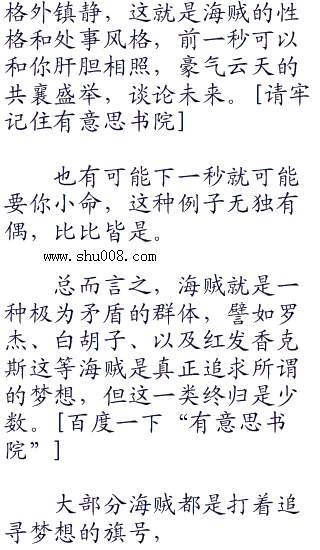 格外镇静，这就是海贼的性
格和处事风格，前一秒可以
和你肝胆相照，豪气云天的
共襄盛举，谈论未来。[请牢
记住有意思书院]
也有可能下一秒就可能
要你小命，这种例子无独有
偶，比比皆是。
www.shu008.com
总而言之，海贼就是一
种极为矛盾的群体，譬如罗
杰、白胡子、以及红发香克
斯这等海贼是真正追求所谓
的梦想，但这一类终归是少
数。[百度一下“有意思书
院”]
大部分海贼都是打着追
寻梦想的旗号，